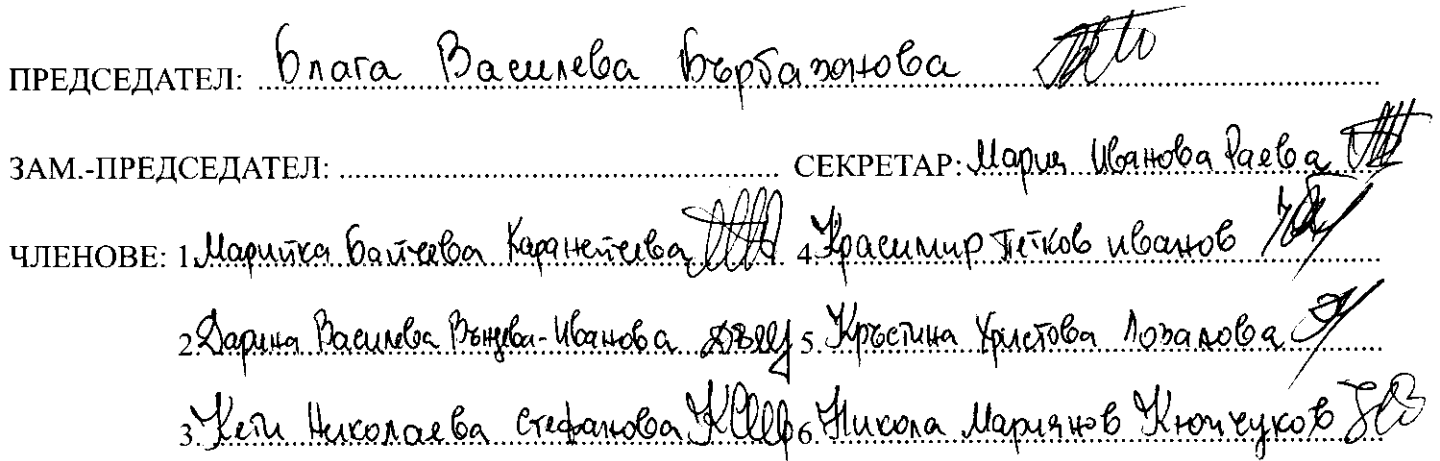 ПРЕДСЕДАТЕЛ: Блага Василева
ЗАМ.-ПРЕДСЕДАТЕЛ: ........ СЕКРЕТАР: Мария Иванова Раева
ЧЛЕНОВЕ: 1. Марийка Байчева 4. Красимир Петков Иванов
2. Дарина Василева Вънцева-Иванова 5. Кръстина Христова
3. Кети Николаева Стефанова 6. Никола Мариянов Кючуков